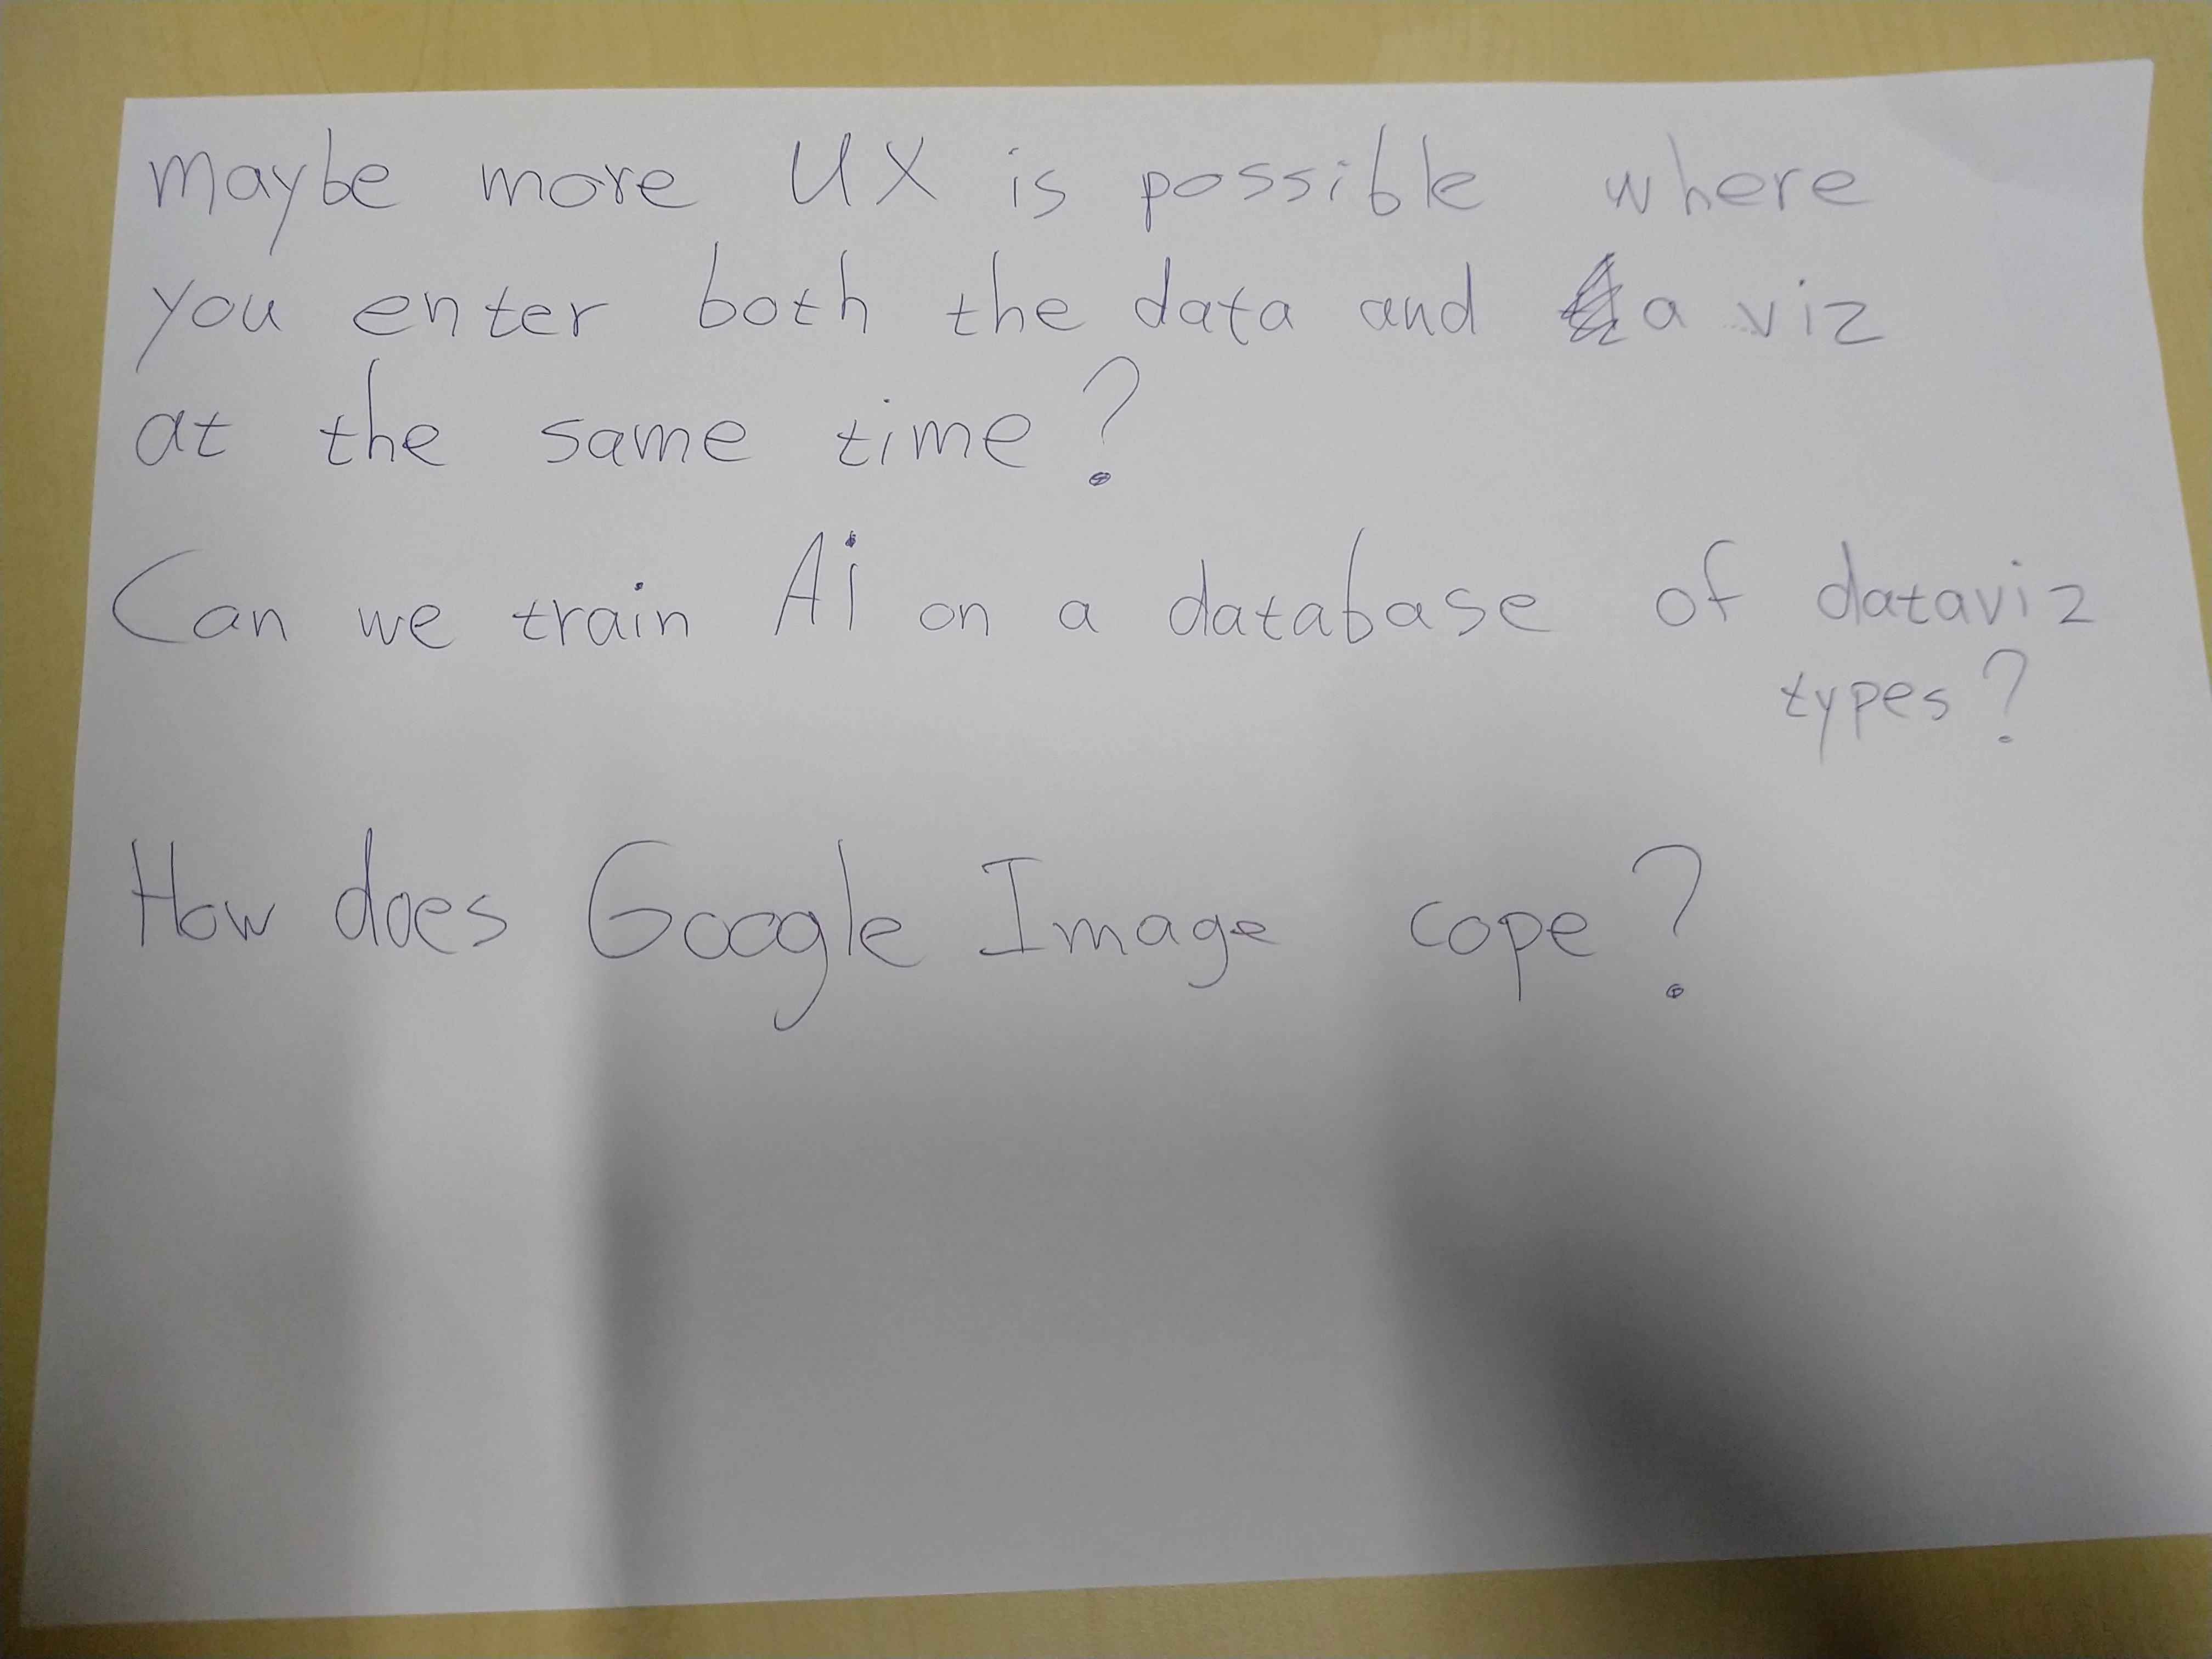 maybe more UX is possible where
you enter both the data and a viz
at the same time?
Can we train Ai on a database of dataviz
types?
How does Google Image cope?